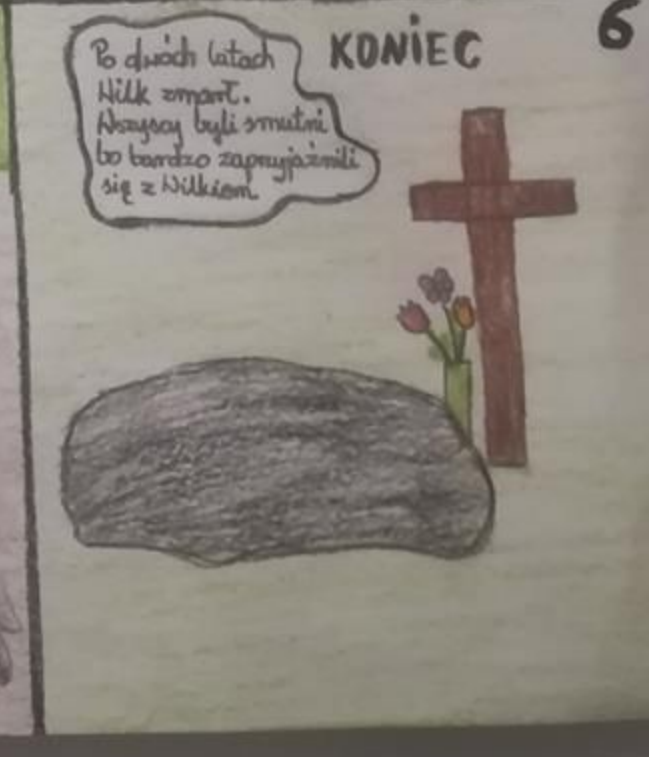 Po dwóch latach
Wilk zmarł.
Wszyscy byli smutni
bo bardzo zaprzyjaźnili
się z Wilkiem
KONIEC
6